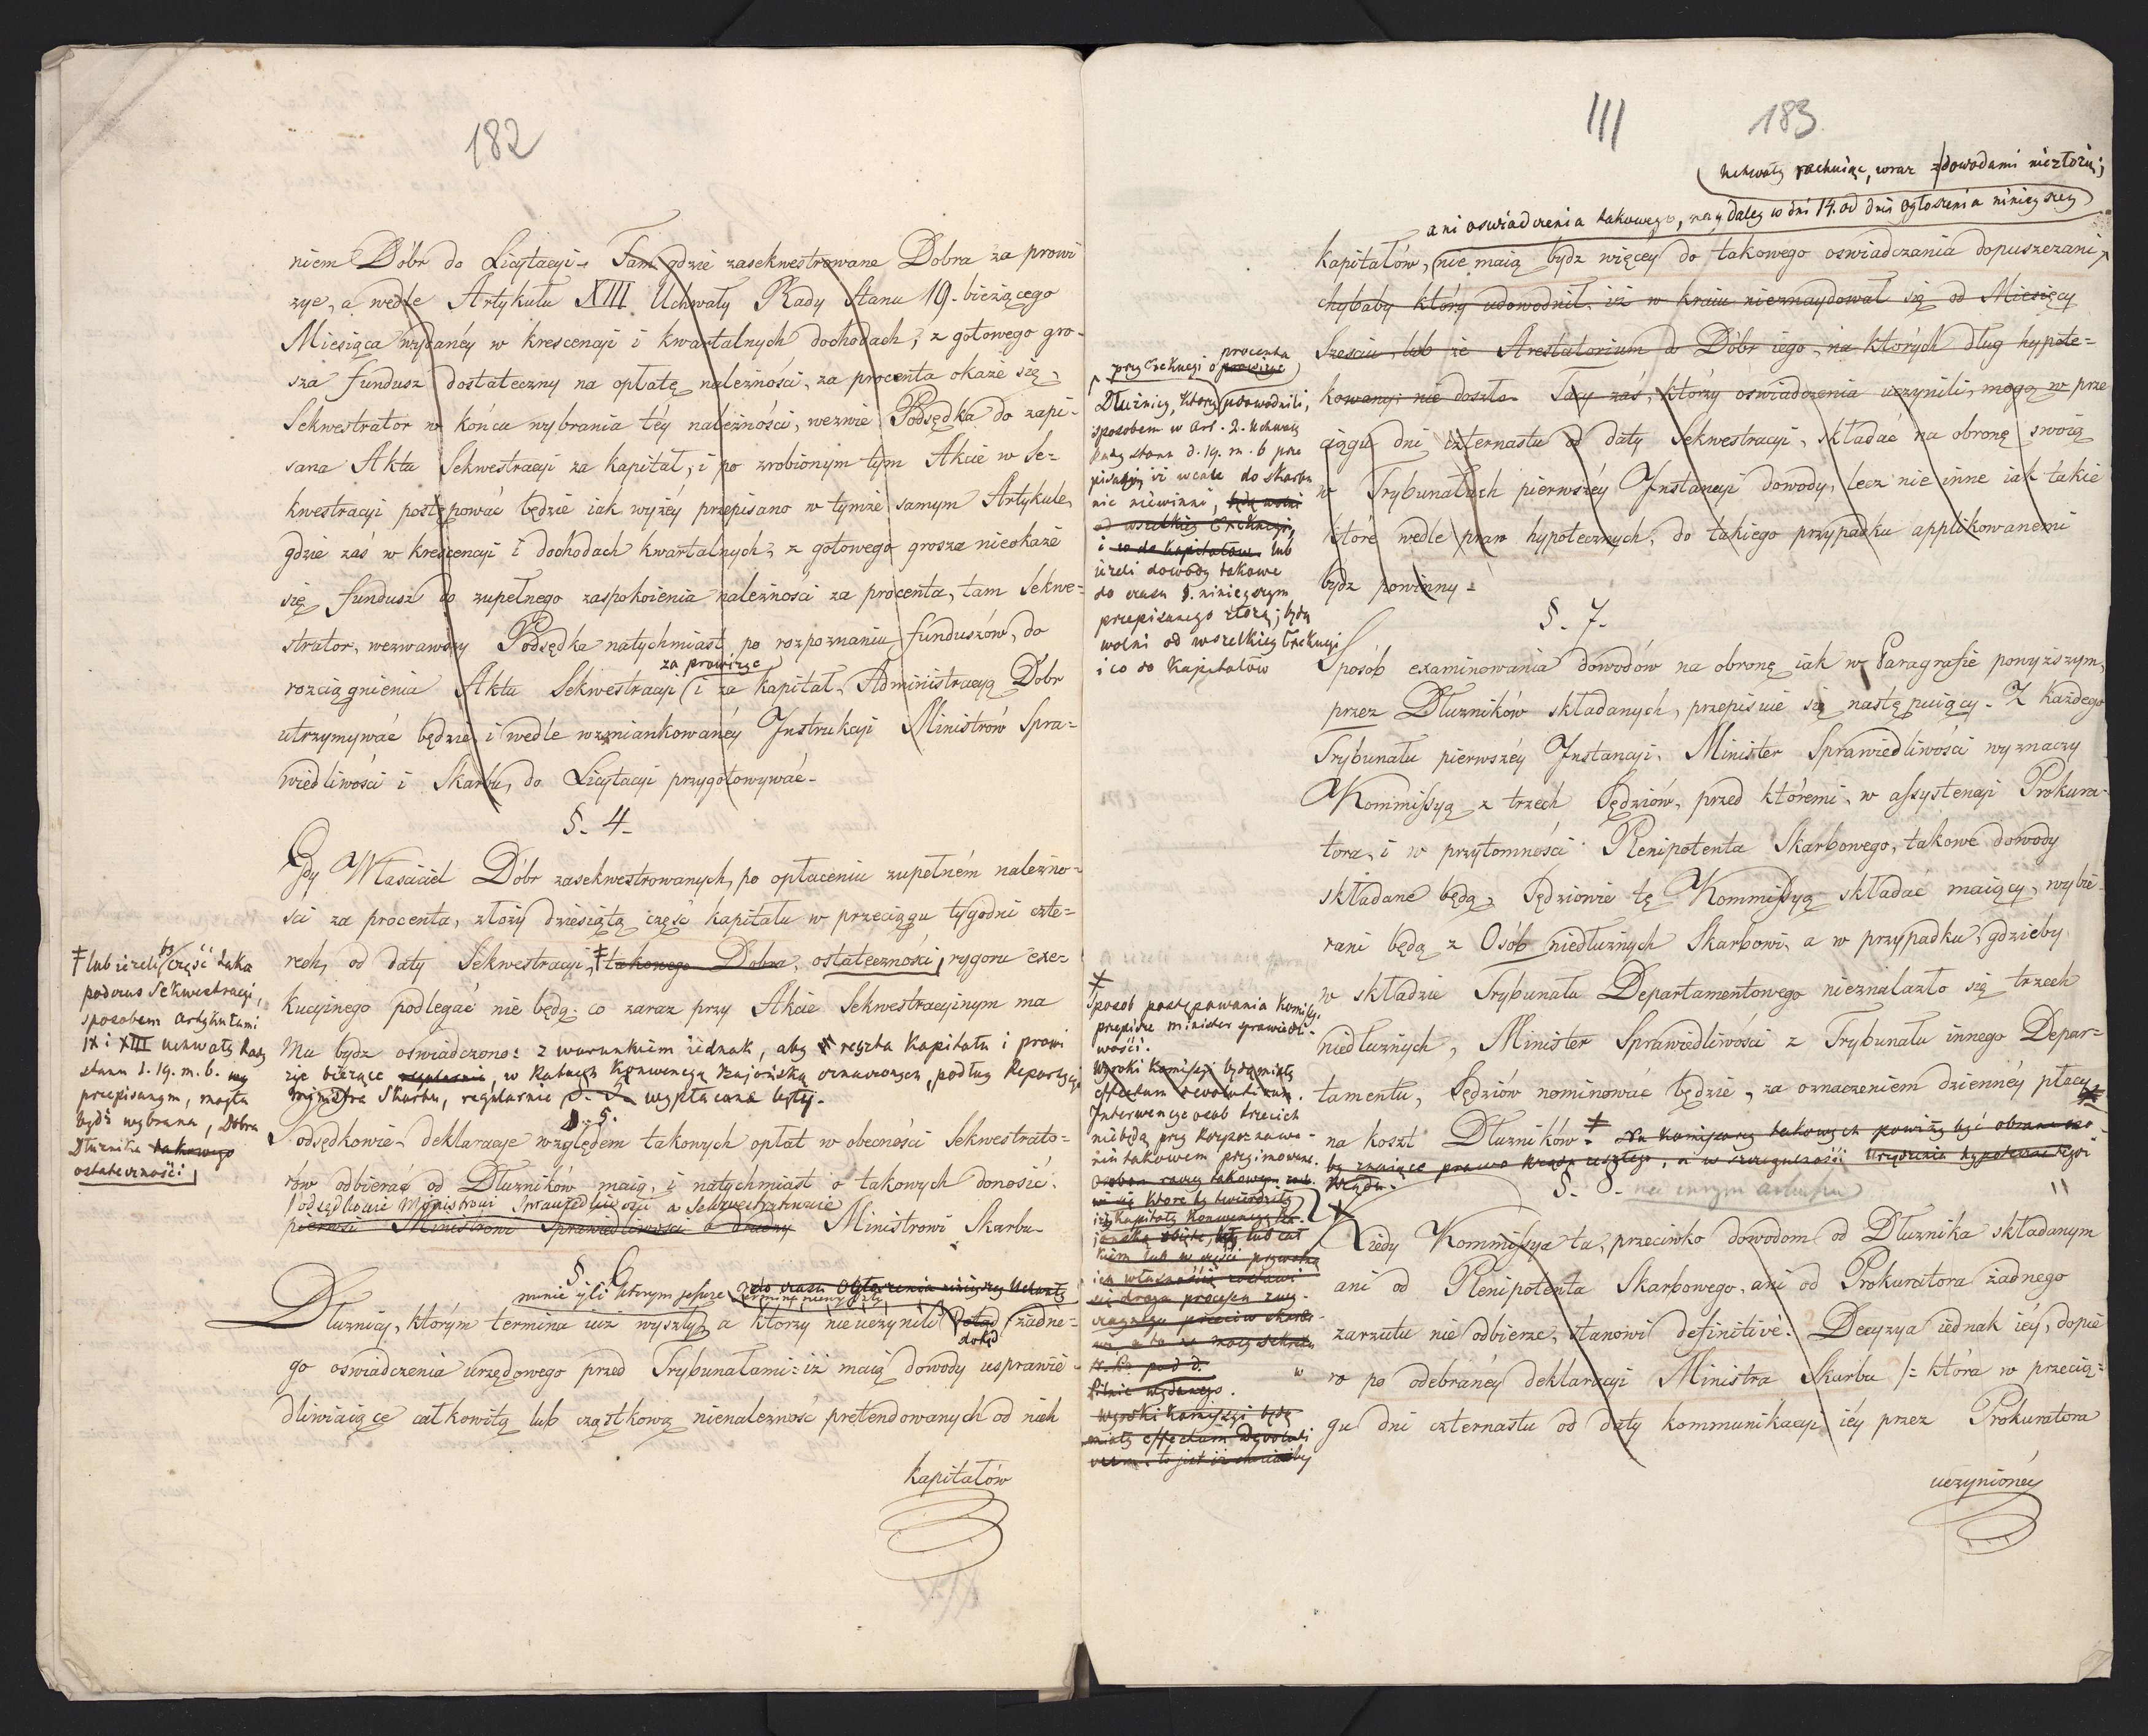 182
niem Dóbr do Licytacyi. Tam gdzie zasekwestrowane Dobra za prowi
zye, a wedle Artykułu XIII Uchwały Rady Stanu 19. bieżącego
Miesiąca wydanéy w krescencyi i kwartalnych dochodach, z gotowego gro-
sza fundusz dostateczny na opłatę należności, za procenta okaże się,
Sekwestrator w końcu wybrania téy należności, wezwie Podsędka do zapi-
sania Aktu Sekwestracyi za kapitał, i po zrobionym tym Akcie w Se-
kwestracyi postępować będzie iak wyżéy przepisano w tymże samym Artykule,
gdzie zaś w krescencyi i dochodach kwartalnych, z gotowego grosza nieokaże
się fundusz do zupełnego zaspokoienia należności za procenta, tam Sekwe-
strator, wezwawszy Podsędka natychmiast po rozpoznaniu funduszów, do
za prowizye
rozciągnienia Aktu Sekwestracyi (i za kapitał, Administracyą Dobr
utrzymywać będzie, i wedle wzmiankowanéy Instrukcyi Ministrów Spra-
wiedliwości i Skarbu, do Licytacyi przygotowywać.
§. 4.
Gdy Właściciel Dóbr zasekwestrowanych, po opłaceniu zupełném należno-
ści za procenta, złoży dziesiątą część kapitału w przeciągu tygodni czte-
rech, od daty Sekwestracyi, ‡ takowego Dobra, ostateczności, rygoru exe-
kucyinego podlegać nie będą, co zaraz przy Akcie Sekwestracyinym ma
Ma bydz oświadczono: z warunkiem iednak, aby reszta Kapitału i prowi
zie bieżące regularnie, w Ratach Konwencyą Bajońską oznaczonych, podług Repartycyi
Ministra Skarbu, regularnie wypłacane były.
‡ lub ieżeli część taka
podczas Sekwestracyi,
sposobem Artykułami
IX i XIII uchwały Rady
stanu d. 19. m. b.
przepisanym, mogła
bydź wybrana, Dobra
Dłużnika takowego
ostateczności
§. 5.
Podsędkowie deklaracye względem takowych opłat w obecności Sekwestrato-
rów odbierać od Dłużników maią, i natychmiast o takowych donosić:
Podsędkowie Ministrowi Sprawiedliwości a Sekwestratorowie
pierwsi Ministrowi Sprawiedliwości a drudzy Ministrowi Skarbu.
§ 6
do czasu Ogłoszenia ninieyszey Uchwały
Dłużnicy, którym termina iuż wyszły, a którzy nieuczynili dotąd (żadne-
dokąd
go oświadczenia urzędowego przed Trybunałami: iż maią dowody usprawie-
dliwiaiące całkowitą lub cząstkową nienależność pretendowanych od nich
kapitałów
III 183
uchwały rachuiąc, wraz z dowodami niezłożą;
ani oswiadczenia takowego, naydaley w dni 14. od dnia ogłoszenia ninieyszey
kapitałów, (nie maią bydz więcéy do takowego oswiadczania dopuszczani,
chybaby który udowodnił, iż w kraiu nieznaydował się od Miesięcy
Sześciu, lub że Arestatorium do Dóbr iego, na których dług hypote-
kowany, nie doszło. Tacy zaś, którzy oświadczenia uczynili, mogą w prze
ciągu dni czternastu od daty Sekwestracyi, składać na obronę swoią
w Trybunałach pierwszéy Instancyi dowody, lecz nie inne iak takie
które wedle praw hypotecznych, do takiego przypadku applikowanemi
bydz powinny.
procenta
przy Exekucyi o prowizye
Dłużnicy, którzy udowodnili,
sposobem w Art. 2. Uchwały
Rady stanu d. 19. m. b prze
pisanym iż wcale do skarbu
nic niewinni, będą wolni
od wszelkiey Exekucyi,
i co do kapitałów lub
ieżeli dowody takowe
do czasu §. ninieyszym
przepisanego złożą; będą
wolni od wszelkiey Exekucyi
i co do Kapitałów
§. 7.
Sposób examinowania dowodów na obronę iak w Paragrafie powyższym,
przez Dłużników składanych, przepisuie się następuiący. Z każdego
Trybunału pierwszéy Instancyi, Minister Sprawiedliwości wyznaczy
Kommissyą z trzech Sędziów, przed któremi, w assystencyi Prokura-
tora, i w przytomności Plenipotenta Skarbowego, takowe dowody
składane będą. Sędziowie tę Kommissyą składać maiący, wybie-
rani będą z Osób niedłużnych Skarbowi, a w przypadku, gdzieby
w składzie Trybunału Departamentowego nieznalazło się trzech
niedłużnych, Minister Sprawiedliwości z Trybunału innego Depar-
tamentu, Sędziów nominować będzie, za oznaczeniem dziennéy płacy
na koszt Dłużników. ‡ Na Komisarzy takowych powinny być obrane oso-
by znaiące prawo, a w szczególności Urządzenia hypoteczne
‡
Sposób postępowania Komisyi
przepisze minister sprawiedli-
wości.
Wyroki Komisyi będą miały
effectum devolutivum.
Interwencye osob trzecich
niebędą przy Rozpoznawa-
niu takowem przyimowane.
Wyroki Komissyi będą
miały effectum Devoluti
§. 8. na innym arkuszu
Kiedy Kommissya ta, przeciwko dowodom od Dłużnika składanym
ani od Plenipotenta Skarbowego, ani od Prokuratora żadnego
zarzutu nie odbierze, stanowi definitivè. Decyzya iednak iéy, dopie
ro po odebranéy deklaracyi Ministra Skarbu /: która w przecią-
gu dni czternastu od daty kommunikacyi iéy przez Prokuratora
uczynionéy